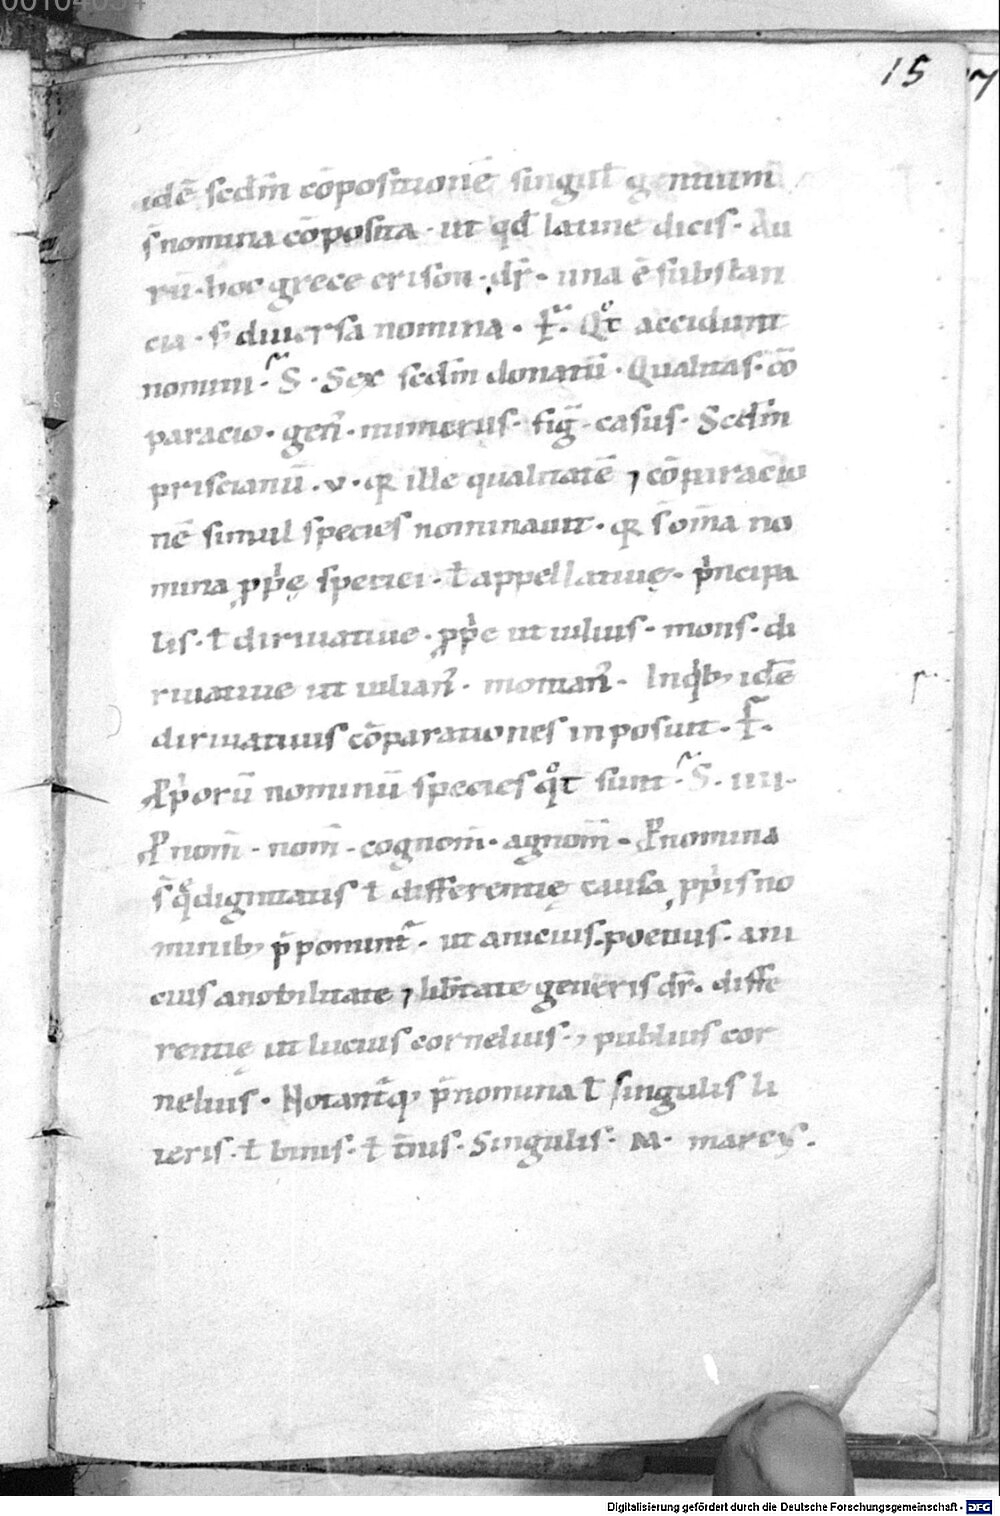 15
idē scdm̄ cōpositionē singul̄ gentium
s̄ nomina cōposita · ut qd̄ latine dicis · Au
rū · hoc grece crison · dr̄ · una ē substan
cia · s; diuersa nomina · F̄ · Qo̊t accidunt
nomini · S̄ · Sex scdm̄ donatū · Qualitas · cō
paracio · gen̄ · numerus · fig̅ · casus · Scdm̄
priscianū · v · qr ille qualitatē ⁊ cōparacio
nē simul species nominauit · qr s̄ om̄a no
mina ꝓpⁱę speciei · ł appellatiuę · pⁱncipa
lis · ł diriuatiue · ꝓpⁱe ut iulius · mons · di
riuatiue ut iulian⁹ · montan⁹ · Inqⁱb; idē
diriuatiuis cōparationes inposuit · F̄ ·
Pꝓⁱorū nominū species qo̊t sunt · S̄ · iiii ·
P̄nom̄ · nom̄ · cognom̄ · agnom̄ · P̄nomina
s̄ q̄ dignitatis ł differentię causa ꝓpⁱis no
minib; p̄ponunt᷑ · ut anicius · poetius · ani
cius anobilitate ⁊ lib̄tate generis dr̄ · diffe
rentię ut lucius cornelius · ⁊ publius cor
nelius · Notant᷑ q; p̄nomina ł singulis li
teris · ł binis · ł t̄nis · Singulis · M · marcus ·
Digitalisierung gefördert durch die Deutsche Forschungsgemeinschaft - DFG